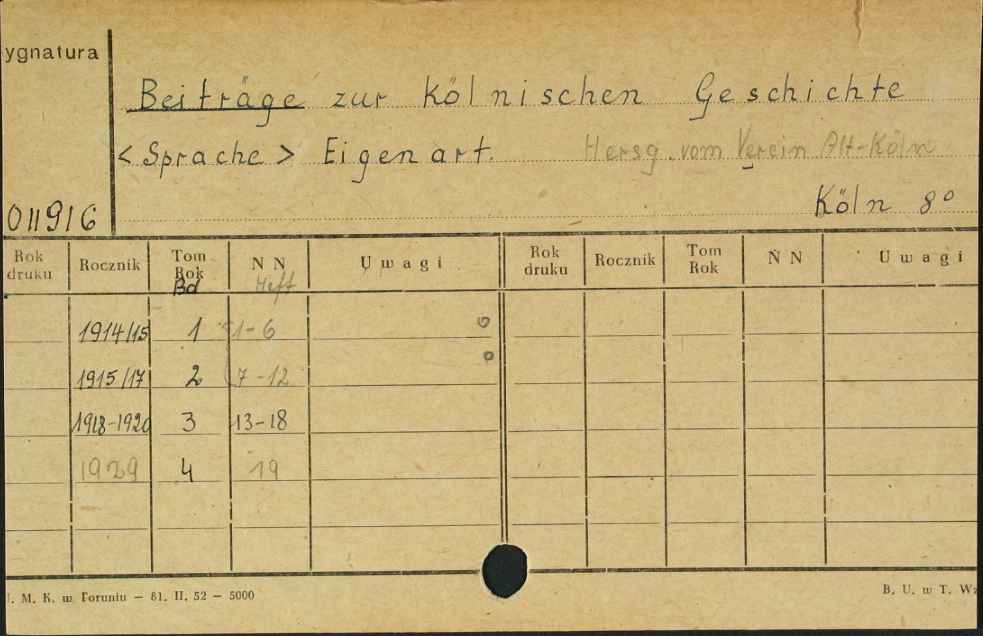 ygnatura
Beiträge zur Kölnischen Geschichte
<Sprache> Eigenart. Hersg. vom Verein Alt-Köln
Köln 8°
011916
Rok druku Rocznik Tom Rok Bd NN Heft Uwagi Rok druku Rocznik Tom Rok NN Uwagi
1914/15 1 1-6
1915/17 2 7-12
1918-1920 3 13-18
1929 4 19
U. M. K. w Toruniu — 81. II. 52 — 5000
B. U. w T. Wz